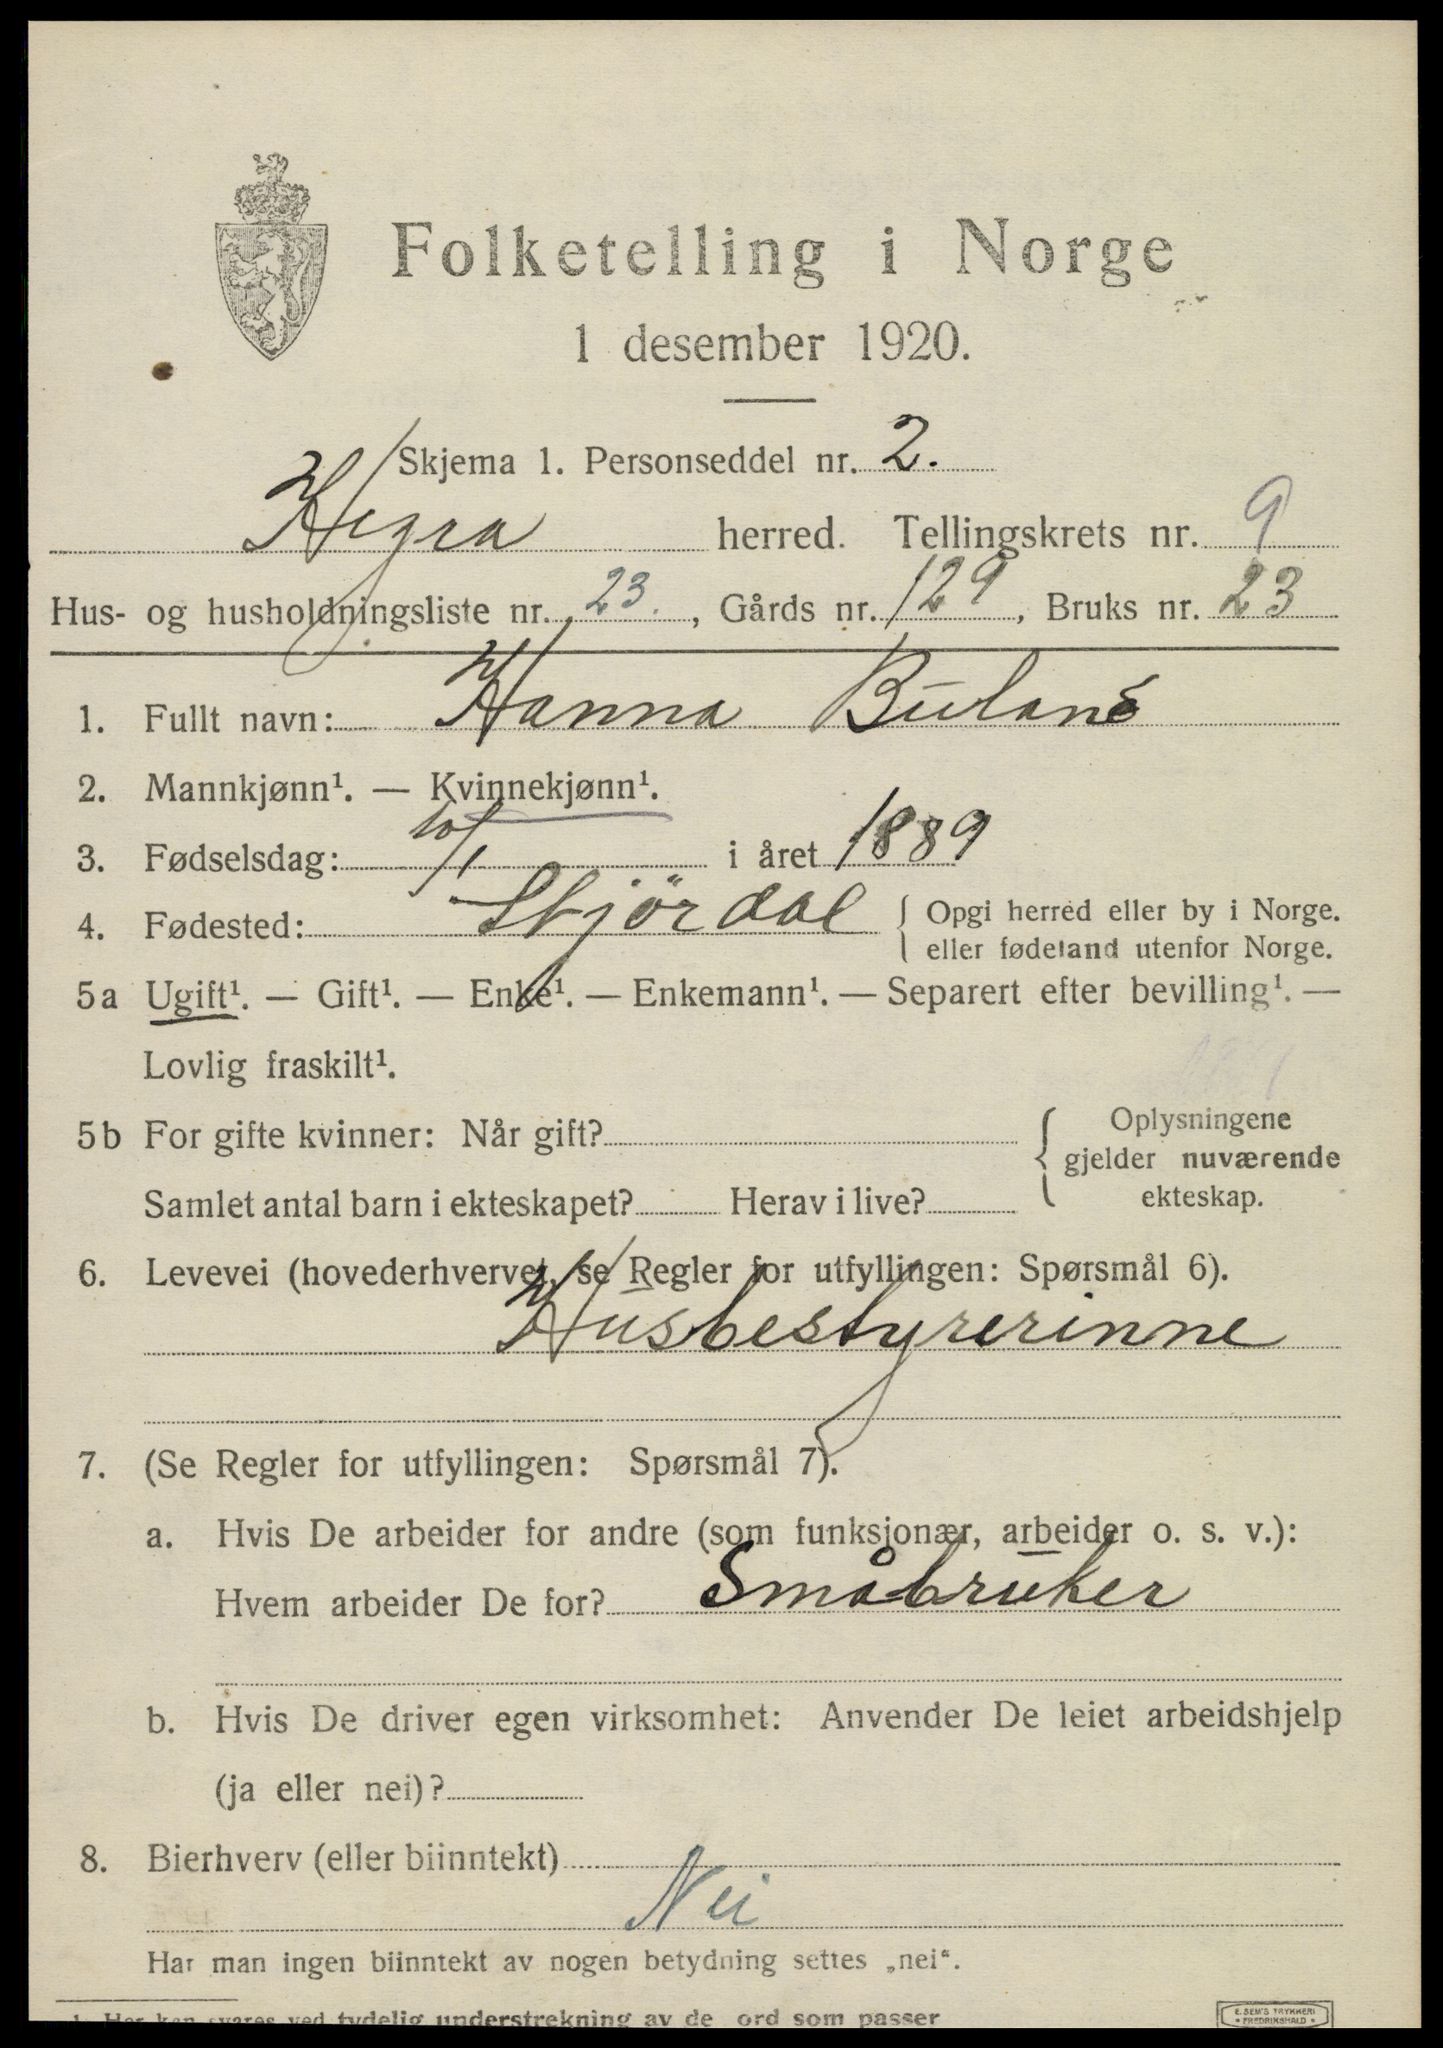 Folketelling i Norge
1 desember 1920.
Skjema 1. Personseddel nr. 2.
Hegra herred. Tellingskrets nr. 9
Hus- og husholdningsliste nr. 23., Gårds nr. 129, Bruks nr. 23
1. Fullt navn: Hanna
2. Mannkjønn¹. — Kvinnekjønn¹.
3. Fødselsdag: 10/1 i året 1889
4. Fødested: Stjördal { Opgi herred eller by i Norge.
eller fødeland utenfor Norge.
5a Ugift¹. — Gift¹. — Enke¹. — Enkemann¹. — Separert efter bevilling¹. —
Lovlig fraskilt¹.
5b For gifte kvinner: Når gift? { Oplysningene
gjelder nuværende
Samlet antal barn i ekteskapet? Herav i live? ekteskap.
6. Levevei (hovederhvervet, se Regler for utfyllingen: Spørsmål 6).
Husbestyrerinne
7. (Se Regler for utfyllingen: Spørsmål 7).
a. Hvis De arbeider for andre (som funksjonær, arbeider o. s. v.):
Hvem arbeider De for? Småbruker
b. Hvis De driver egen virksomhet: Anvender De leiet arbeidshjelp
(ja eller nei)?
8. Bierhverv (eller biinntekt)
Nei
Har man ingen biinntekt av nogen betydning settes „nei“.
1. Her kan svares ved tydelig understrekning av de ord som passer
E. SEM'S TRYKKERI
• FREDRIKSHALD •